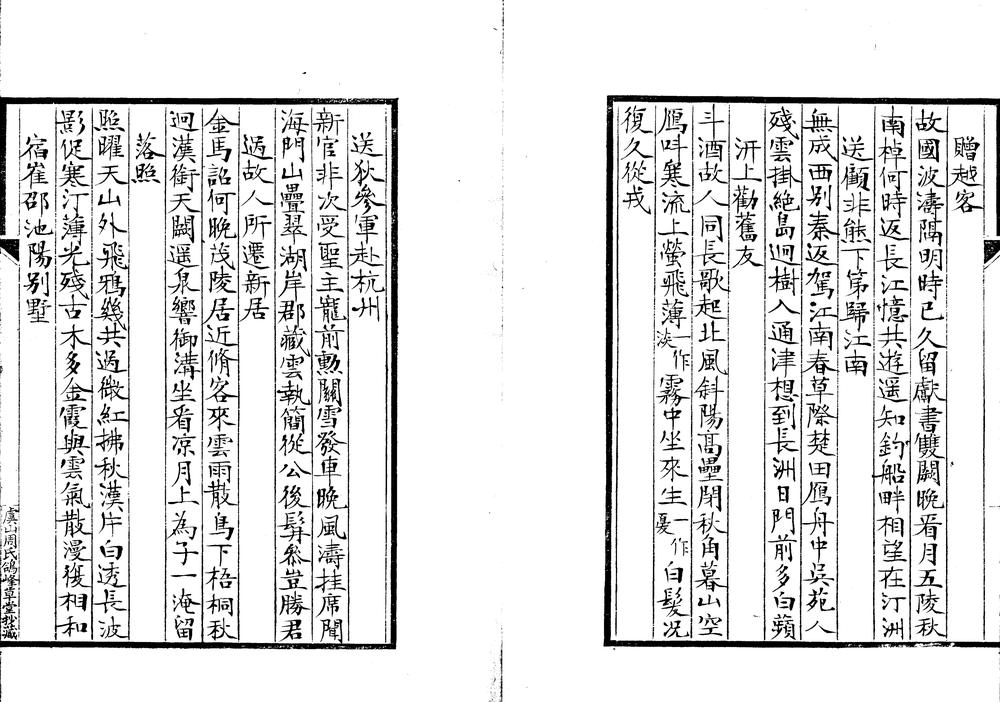 贈越客
故國波濤隔明時已久留獻書雙闕晚看月五陵秋
南棹何時返長江憶共遊遥知釣船畔相望在汀洲
送顧非熊下第歸江南
無成西别秦返駕江南春草際楚田鴈舟中吳苑人
殘雲掛絶島迥樹入通津想到長洲日門前多白蘋
汧上勸舊友
斗酒故人同長歌起北風斜陽高壘閉秋角暮山空
鴈叫寒流上螢飛薄一作淡霧中坐來生一作憂白髮况
復久從戎
送狄參軍赴杭州
新官非次受聖主寵前勲關雪發車晚風濤挂席聞
海門山疊翠湖岸郡藏雲執簡從公後髯參豈勝君
過故人所遷新居
金馬詔何晚茂陵居近脩客來雲雨散鳥下梧桐秋
迥漢銜天闕遥泉響御溝坐看凉月上為子一淹留
落照
照曜天山外飛鴉幾共過微紅拂秋漢片白透長波
影促寒汀薄光殘古木多金霞與雲氣散漫復相和
宿崔邵池陽别墅
虞山周氏鴿峰草堂抄藏